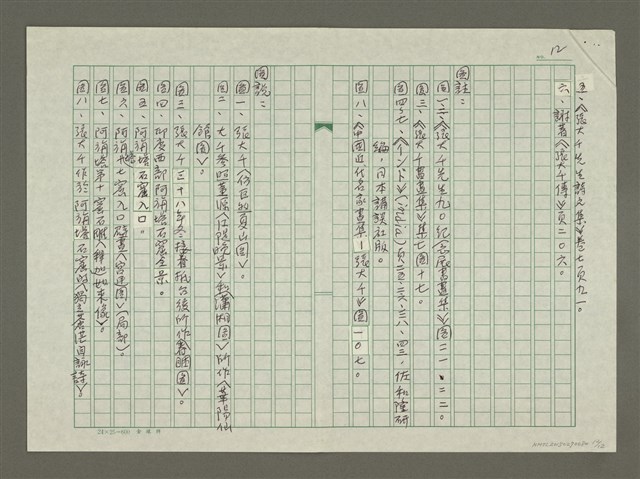 12
五、《張大千先生詩文集》卷七頁九一。
六、謝著《張大千傳》頁二〇六。
圖註:
圖一、二、《張大千先生九〇紀念展書畫集》圖二一、二二。
圖三、《張大千書畫集》集七圖十七。
圖四~七、《インド》(India)頁二五、二六、三八、四三,佐和隆研
編,日本講談社版。
圖八、《中國近代名家畫集—張大千》圖一〇七。
圖說:
圖一、張大千〈仿巨然夏山圖〉。
圖二、大千參照董源〈江隄晚景〉和〈瀟湘圖〉所作〈華陽仙
館圖〉。
圖三、張大千三十八年冬、接着抵台後所作〈春睏圖〉。
圖四、印度西部阿旃塔石窟全景。
圖五、阿旃塔石窟入口。
圖六、阿旃塔九窟入口壁畫〈宮建圖〉(局部)。
圖七、阿旃塔第十窟石雕〈釋迦如來像〉。
圖八、張大千作於阿旃塔石窟時〈獨立蒼茫自詠詩〉。
24×25=600